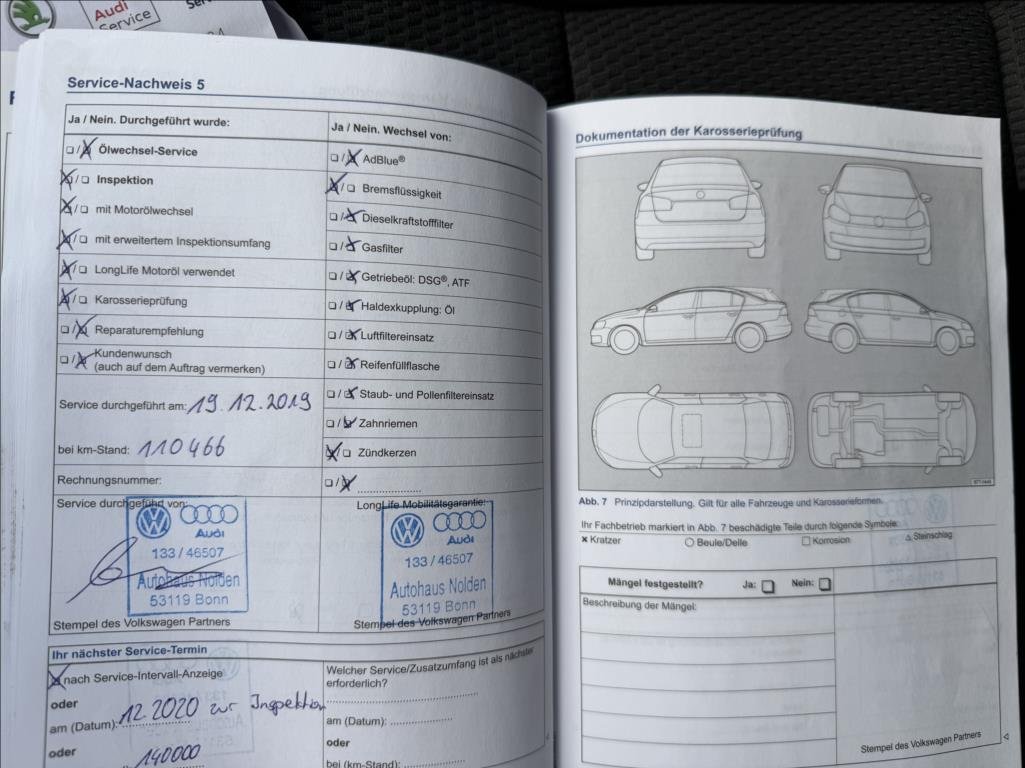 Audi
Service
Service-Nachweis 5
Ja / Nein. Durchgeführt wurde:
Ölwechsel-Service
Inspektion
mit Motorölwechsel
mit erweitertem Inspektionsumfang
LongLife Motoröl verwendet
Karosserieprüfung
Reparaturempfehlung
Kundenwunsch
(auch auf dem Auftrag vermerken)
Service durchgeführt am: 19.12.2019
bei km-Stand: 110466
Rechnungsnummer:
Service durchgeführt von:
Audi
133 / 46507
Autohaus Nolden
53119 Bonn
Stempel des Volkswagen Partners
Ja / Nein. Wechsel von:
AdBlue®
Bremsflüssigkeit
Dieselkraftstofffilter
Gasfilter
Getriebeöl: DSG®, ATF
Haldexkupplung: Öl
Luftfiltereinsatz
Reifenfüllflasche
Staub- und Pollenfiltereinsatz
Zahnriemen
Zündkerzen
LongLife Mobilitätsgarantie:
Audi
133 / 46507
Autohaus Nolden
53119 Bonn
Stempel des Volkswagen Partners
Ihr nächster Service-Termin
nach Service-Intervall-Anzeige
oder
am (Datum): 12.2020 zur Inspektion
oder
140000
Welcher Service/Zusatzumfang ist als nächster
erforderlich?
am (Datum):
oder
bei (km-Stand):
Dokumentation der Karosserieprüfung
Abb. 7 Prinzipdarstellung. Gilt für alle Fahrzeuge und Karosserieformen.
Ihr Fachbetrieb markiert in Abb. 7 beschädigte Teile durch folgende Symbole:
Kratzer Beule/Delle Korrosion Steinschlag
Mängel festgestellt? Ja: Nein:
Beschreibung der Mängel:
Stempel des Volkswagen Partners